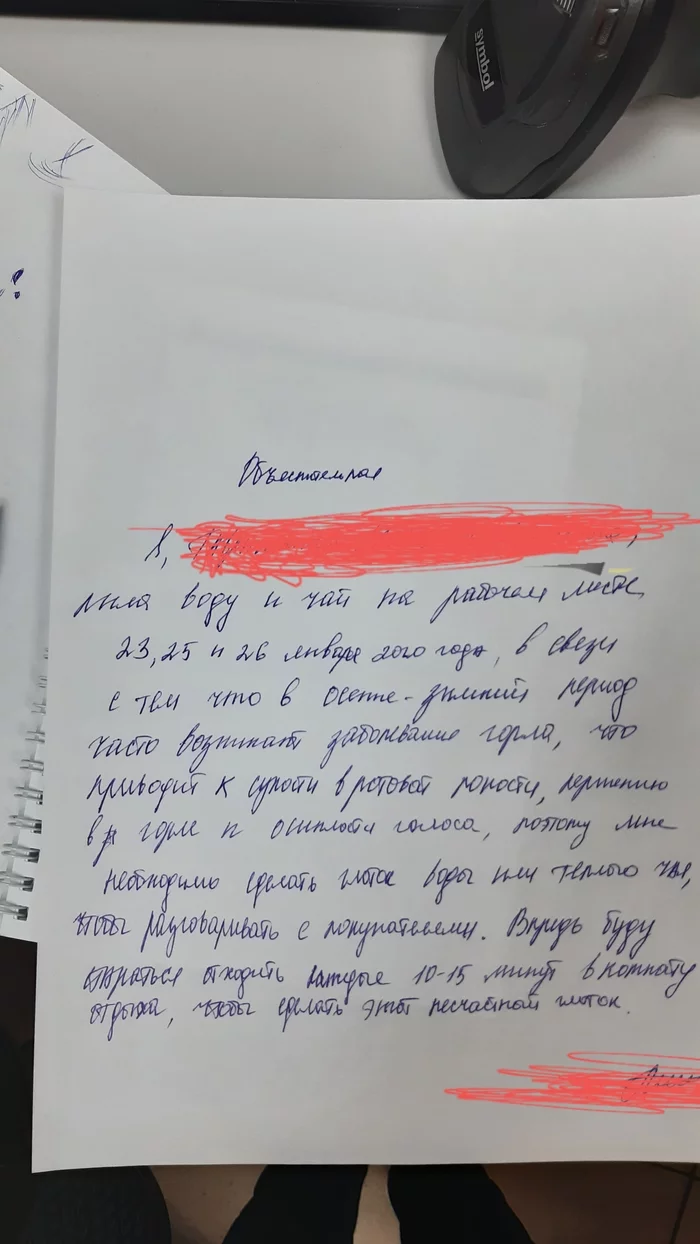 symbol
!
Объяснительная
Я,
пила воду и чай на рабочем месте,
23, 25 и 26 января 2020 года, в связи
с тем что в осенне-зимний период
часто возникают заболевание горла, что
приводит к сухости в ротовой полости, першению
в горле и осиплости голоса, поэтому мне
необходимо сделать глоток воды или теплого чая,
чтобы разговаривать с покупателями. Впредь буду
стараться отходить каждые 10-15 минут в комнату
отдыха, чтобы сделать этот несчастной глоток.